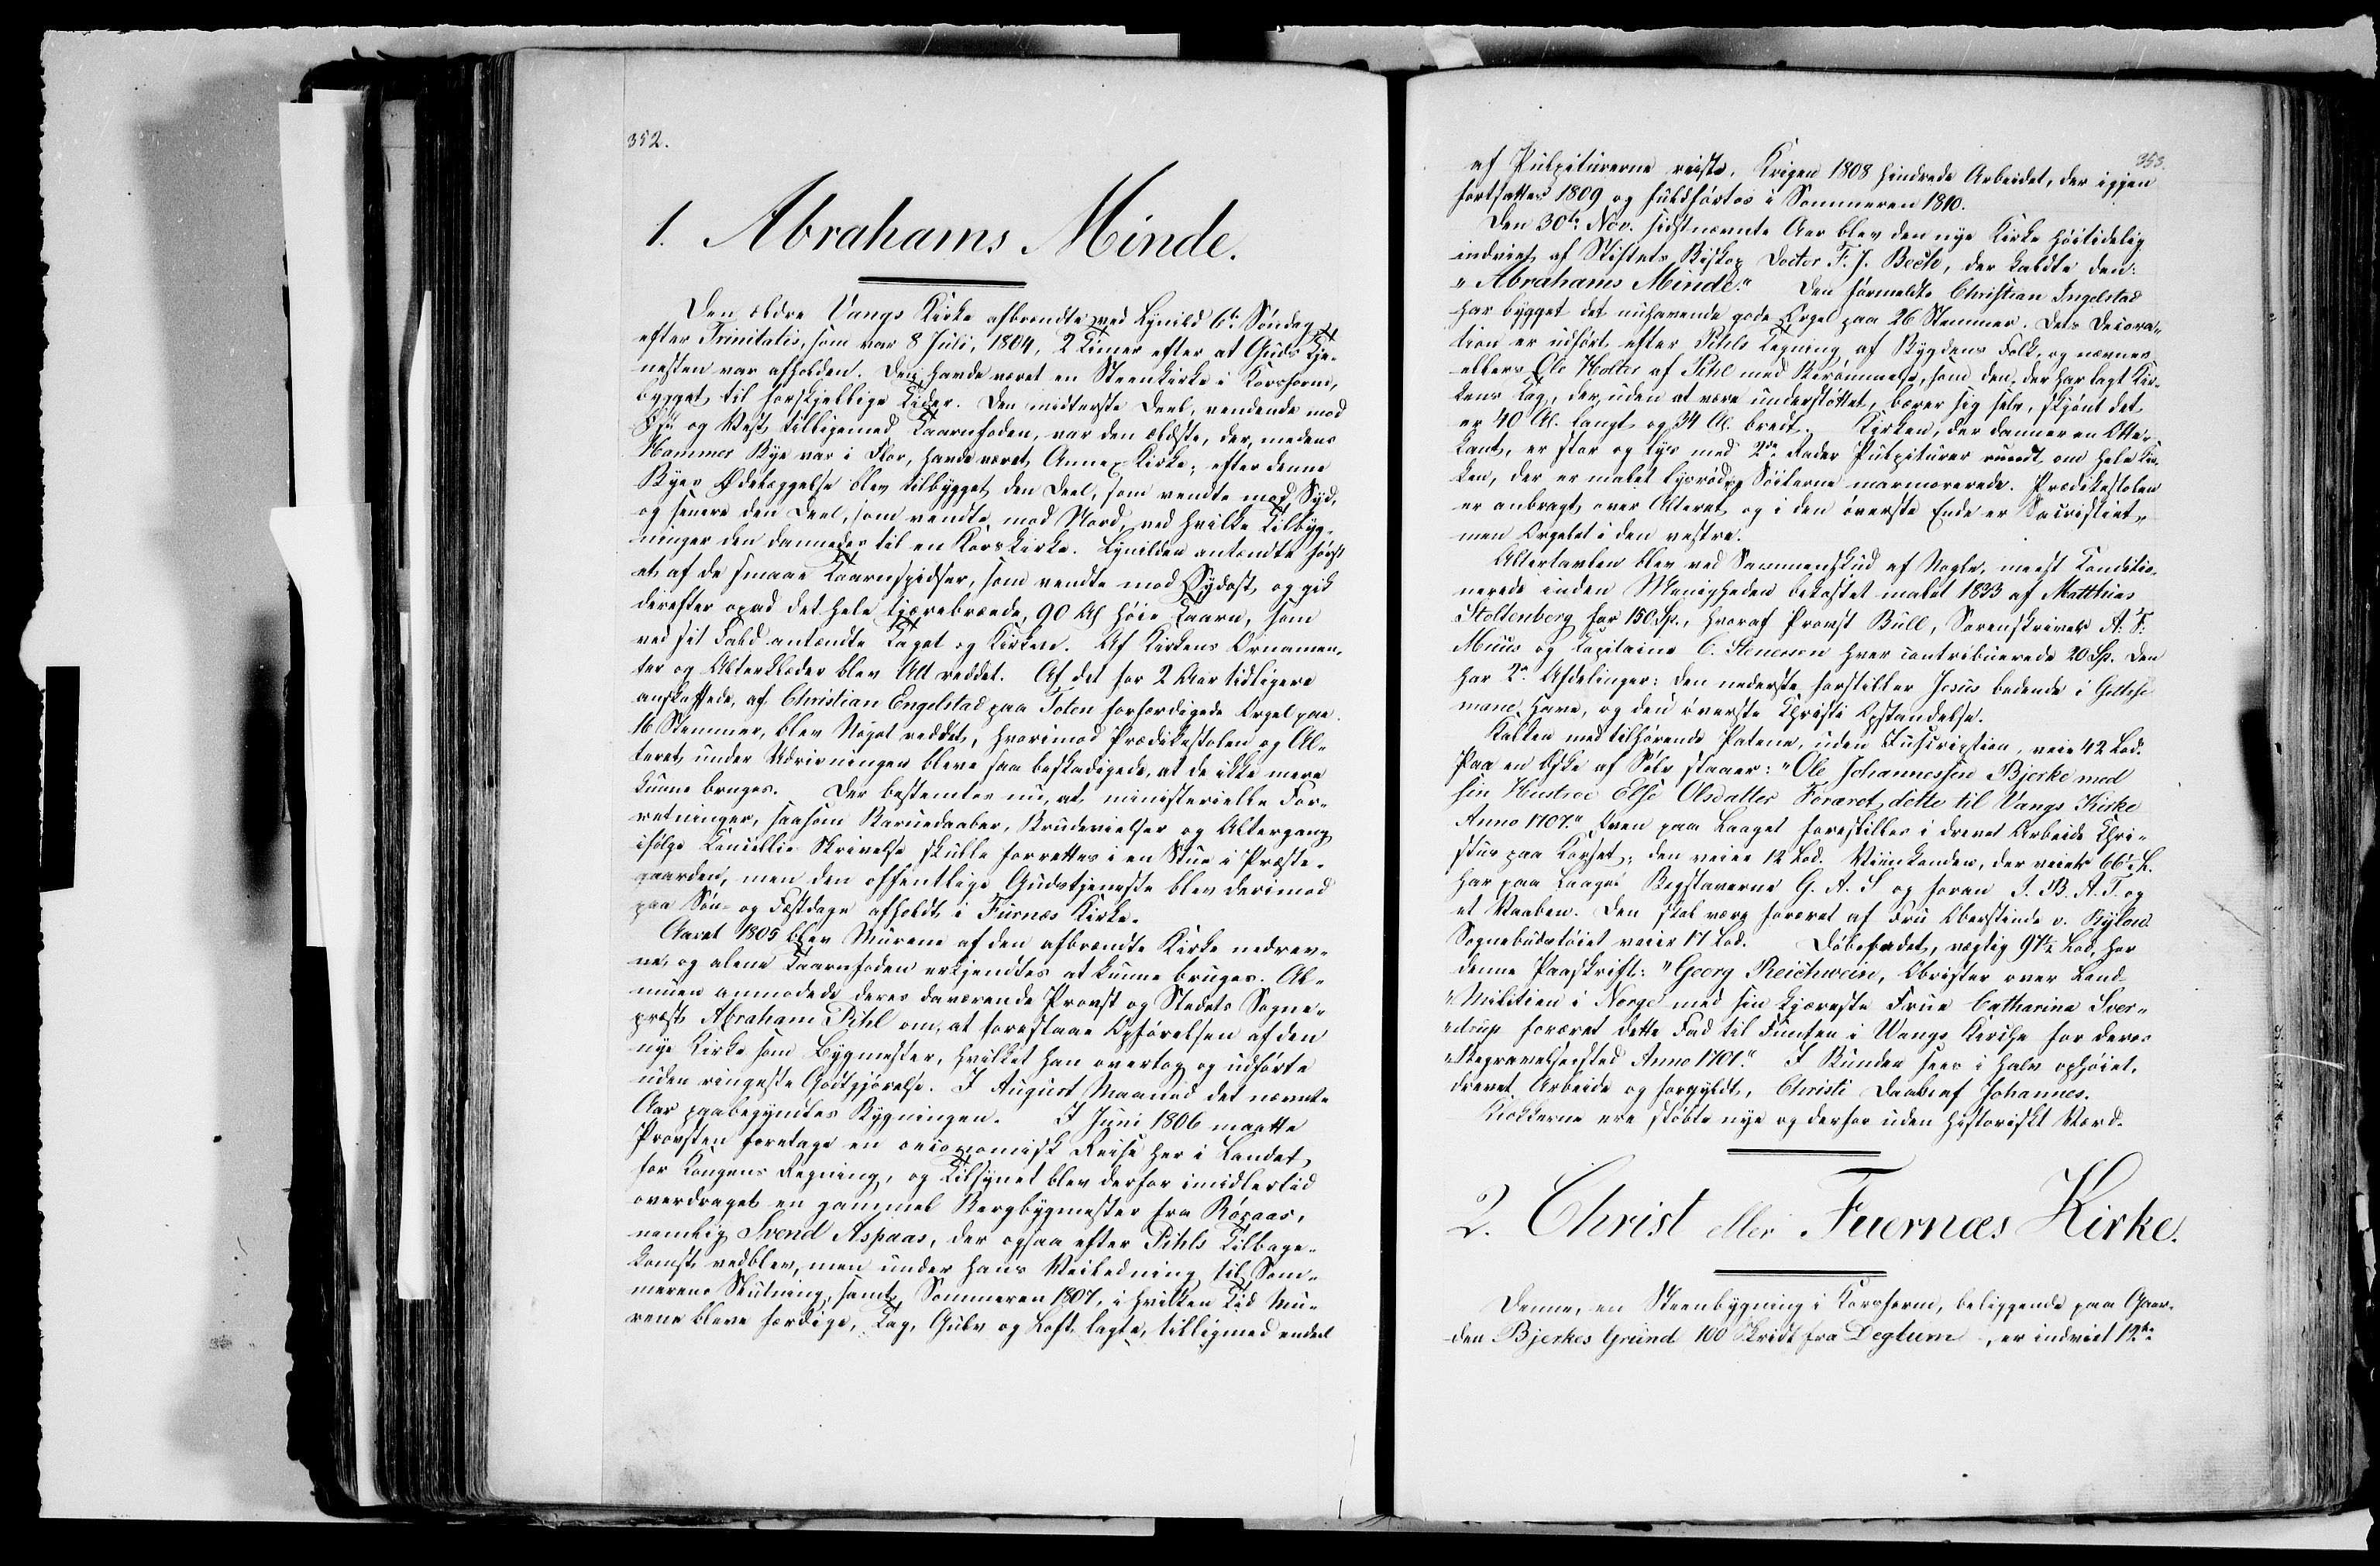 352.
1. Abrahams Minde.
Den ældre Vangs Kirke afbrændte ved Lynild 6te Søndag
efter Trinitatis, som var 8 Juli, 1804, 2 Timer efter at Guds Tje-
nesten var afholden. Den havde været en Steenkirke i Korsform,
bygget til forskjellige Tider. Den midterste Deel, vendende mod
Øst og Vest, tilligemed Taarnfoden, var den ældste, der, medens
Hammer Bye var i Flor, havde været Annex-Kirke; efter denne
Byes Ødelæggelse blev tilbygget den Deel, som vendte mod Syd,
og senere den Deel, som vendte mod Nord, ved hvilke Tilbyg-
ninger den dannedes til en Korskirke. Lynilden antændte først
et af de smaae Taarnspidser, som vendte mod Sydost, og gik
derefter opad det hele tjærebrædde, 90 Al. høie Taarn, som
ved sit Fald antændte Taget og Kirken. Af Kirkens Ornamen-
ter og Alterklæder blev Alt reddet. Af det for 2 Aar tidligere
anskaffede, af Christian Engelstad paa Toten forfærdigede Orgel paa
16 Stemmer, blev Noget reddet, hvorimod Prædikestolen og Al-
teret under Udrivningen bleve saa beskadigede, at de ikke mere
kunne bruges. Der bestemtes nu, at ministerielle For-
retninger, saasom Barnedaaber, Brudevielser og Altergang
ifølge Cancellie Skrivelse skulle forrettes i en Stue i Præste-
gaarden, men den offentlige Gudstjeneste blev derimod
paa Søn- og Festdage afholdt i Furnæs Kirke.
Aaret 1805 blev Murene af den afbrændte Kirke nedrev-
ne, og alene Taarnfoden erkjendtes at kunne bruges. Al-
muen anmodede deres daværende Provst og Stedets Sogne-
præst Abraham Pihl om, at forestaae Opførelsen af den
nye Kirke som Bygmester, hvilket han overtog og udførte
uden ringeste Godtgjørelse. I August Maaned det nævnte
Aar paabegyndtes Bygningen. I Juni 1806 maatte
Provsten foretage en oeconomisk Reise her i Landet
for Kongens Regning, og Tilsynet blev derfor imidlertid
overdraget en gammel Bergbygmester fra Røraas,
nemlig Svend Aspaas, der ogsaa efter Pihls Tilbage-
komst vedblev, men under hans Veiledning til Som-
merens Slutning, samt Sommeren 1807, i hvilken Tid Mu-
rene bleve færdige, Tag, Gulv og Loft lagte, tilligemed endeel
353.
af Pulpiturerne reiste. Krigen 1808 hindrede Arbeidet, der igjen
fortsattes 1809 og fuldførtes i Sommeren 1810.
Den 30te Nov. sidstnævnte Aar blev den nye Kirke høitidelig
indviet af Stiftets Biskop Doctor F. J. Bech, der kaldte den:
"Abrahams Minde." Den førmeldte Christian Engelstad
har bygget det nuhavende gode Orgel paa 26 Stemmer. Dets Decora-
tion er udført efter Pihls Tegning af Bygdens Folk, og nævnes
ellers Ole Holter af Pihl med Berømmelse, som den, der har lagt Kir-
kens Tag, der, uden at være understøttet, bærer sig selv, skjønt det
er 40 Al. langt og 34 Al. bredt. Kirken, der danner en Otte-
kant, er stor og lys med 2de Rader Pulpiturer rundt om hele Kir-
ken, der er malet lysrød, Søilerne marmorerede. Prædikestolen
er anbragt over Alteret, og i den øverste Ende er Sacristiet,
men Orgelet i den vestre.
Altertavlen blev ved Sammenskud af Nogle, meest Conditio-
nerede inden Menigheden bekostet malet 1833 af Matthias
Stoltenberg for 150 Sp., hvoraf Provst Bull, Sorenskriver A. F.
Muus og Capitaine C. Stenersen hver contribuerede 20 Sp. Den
har 2de Afdelinger: den nederste forstiller Jesus bedende i Gethse-
mane Have, og den øverste Christi Opstandelse.
Kalken med tilhørende Patene, uden Inscription, veie 42 Lod.
Paa en Æske af Sølv staaer: "Ole Johannessen Bjerke med
sin Hustroe Else Olsdatter Foræret dette til Vangs Kirke
Anno 1707." Oven paa Laaget forestilles i drevet Arbeide Chri-
stus paa Korset; den veier 12 Lod. Viinkanden, der veier 66½ L.
har paa Laaget Bogstaverne G. A. S og foran I. B. A. T. og
et Vaaben. Den skal være foræret af Fru Oberstinde v. Bylow.
Sognebudstøiet veier 17 Lod. Døbefadet, vægtig 97½ Lod, har
denne Paaskrift: "Georg Reichwein, Obrister over Land-
"Militien i Norge med sin kjæreste Frue Catharina Sver-
"drup foræret dette Fad til Funten i Wangs Kirche for deres
"Begravelsessted Anno 1701." I Bunden sees i halv ophøiet,
drevet Arbeide og forgyldt, Christi Daab af Johannes.
Klokkerne ere støbte nye og derfor uden historiskt Værd.
2. Christ eller Fuernæs Kirke.
Denne, en Steenbygning i Korsform, beliggende paa Gaar-
den Bjerkes Grund 100 Skridt fra Deglum, er indviet 12te